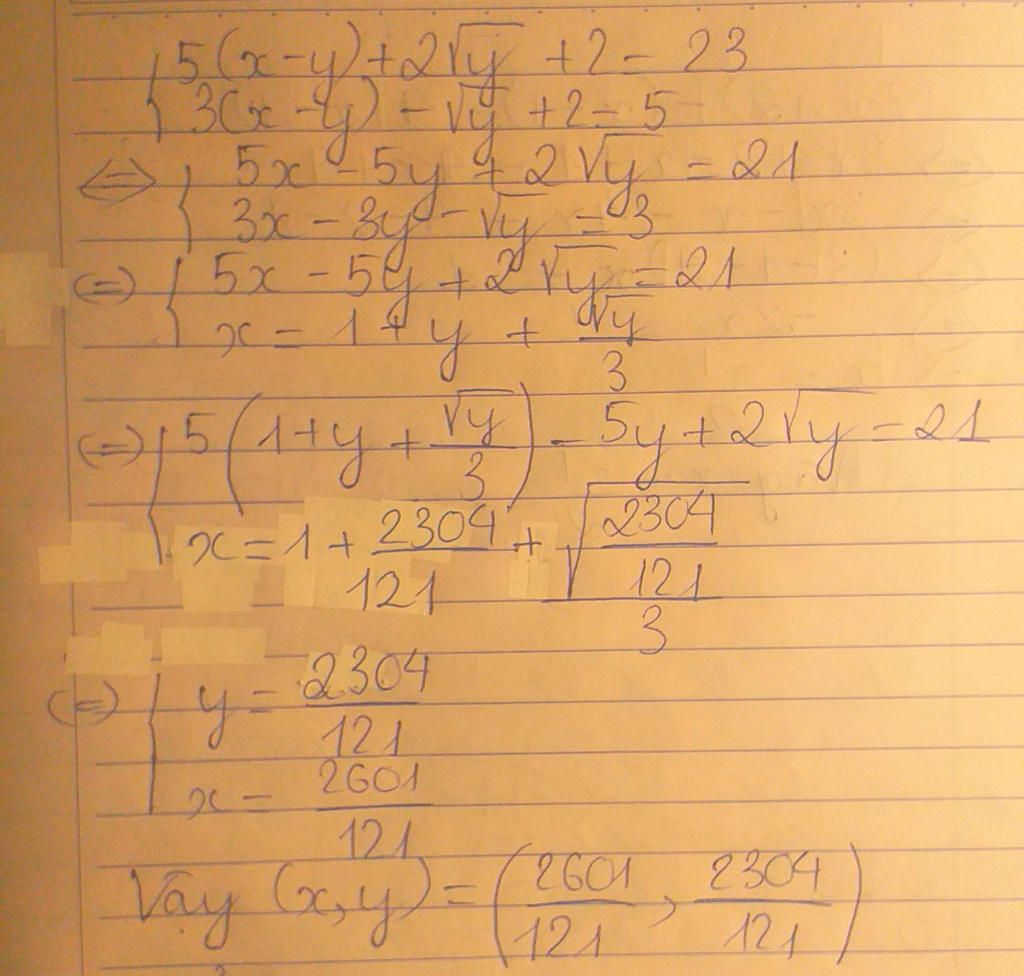 5(x-y)+2√y +2 = 23
3(x-y) - √y +2 = 5
⇔ 5x - 5y + 2√y = 21
3x - 3y - √y = 3
(=) 5x - 5y + 2√y = 21
x = 1 + y + √y/3
(=) 5(1+y+√y/3) - 5y + 2√y = 21
x = 1 + 2304/121 + √(2304/121)/3
(=) y = 2304/121
x = 2601/121
Vậy (x,y) = (2601/121, 2304/121)